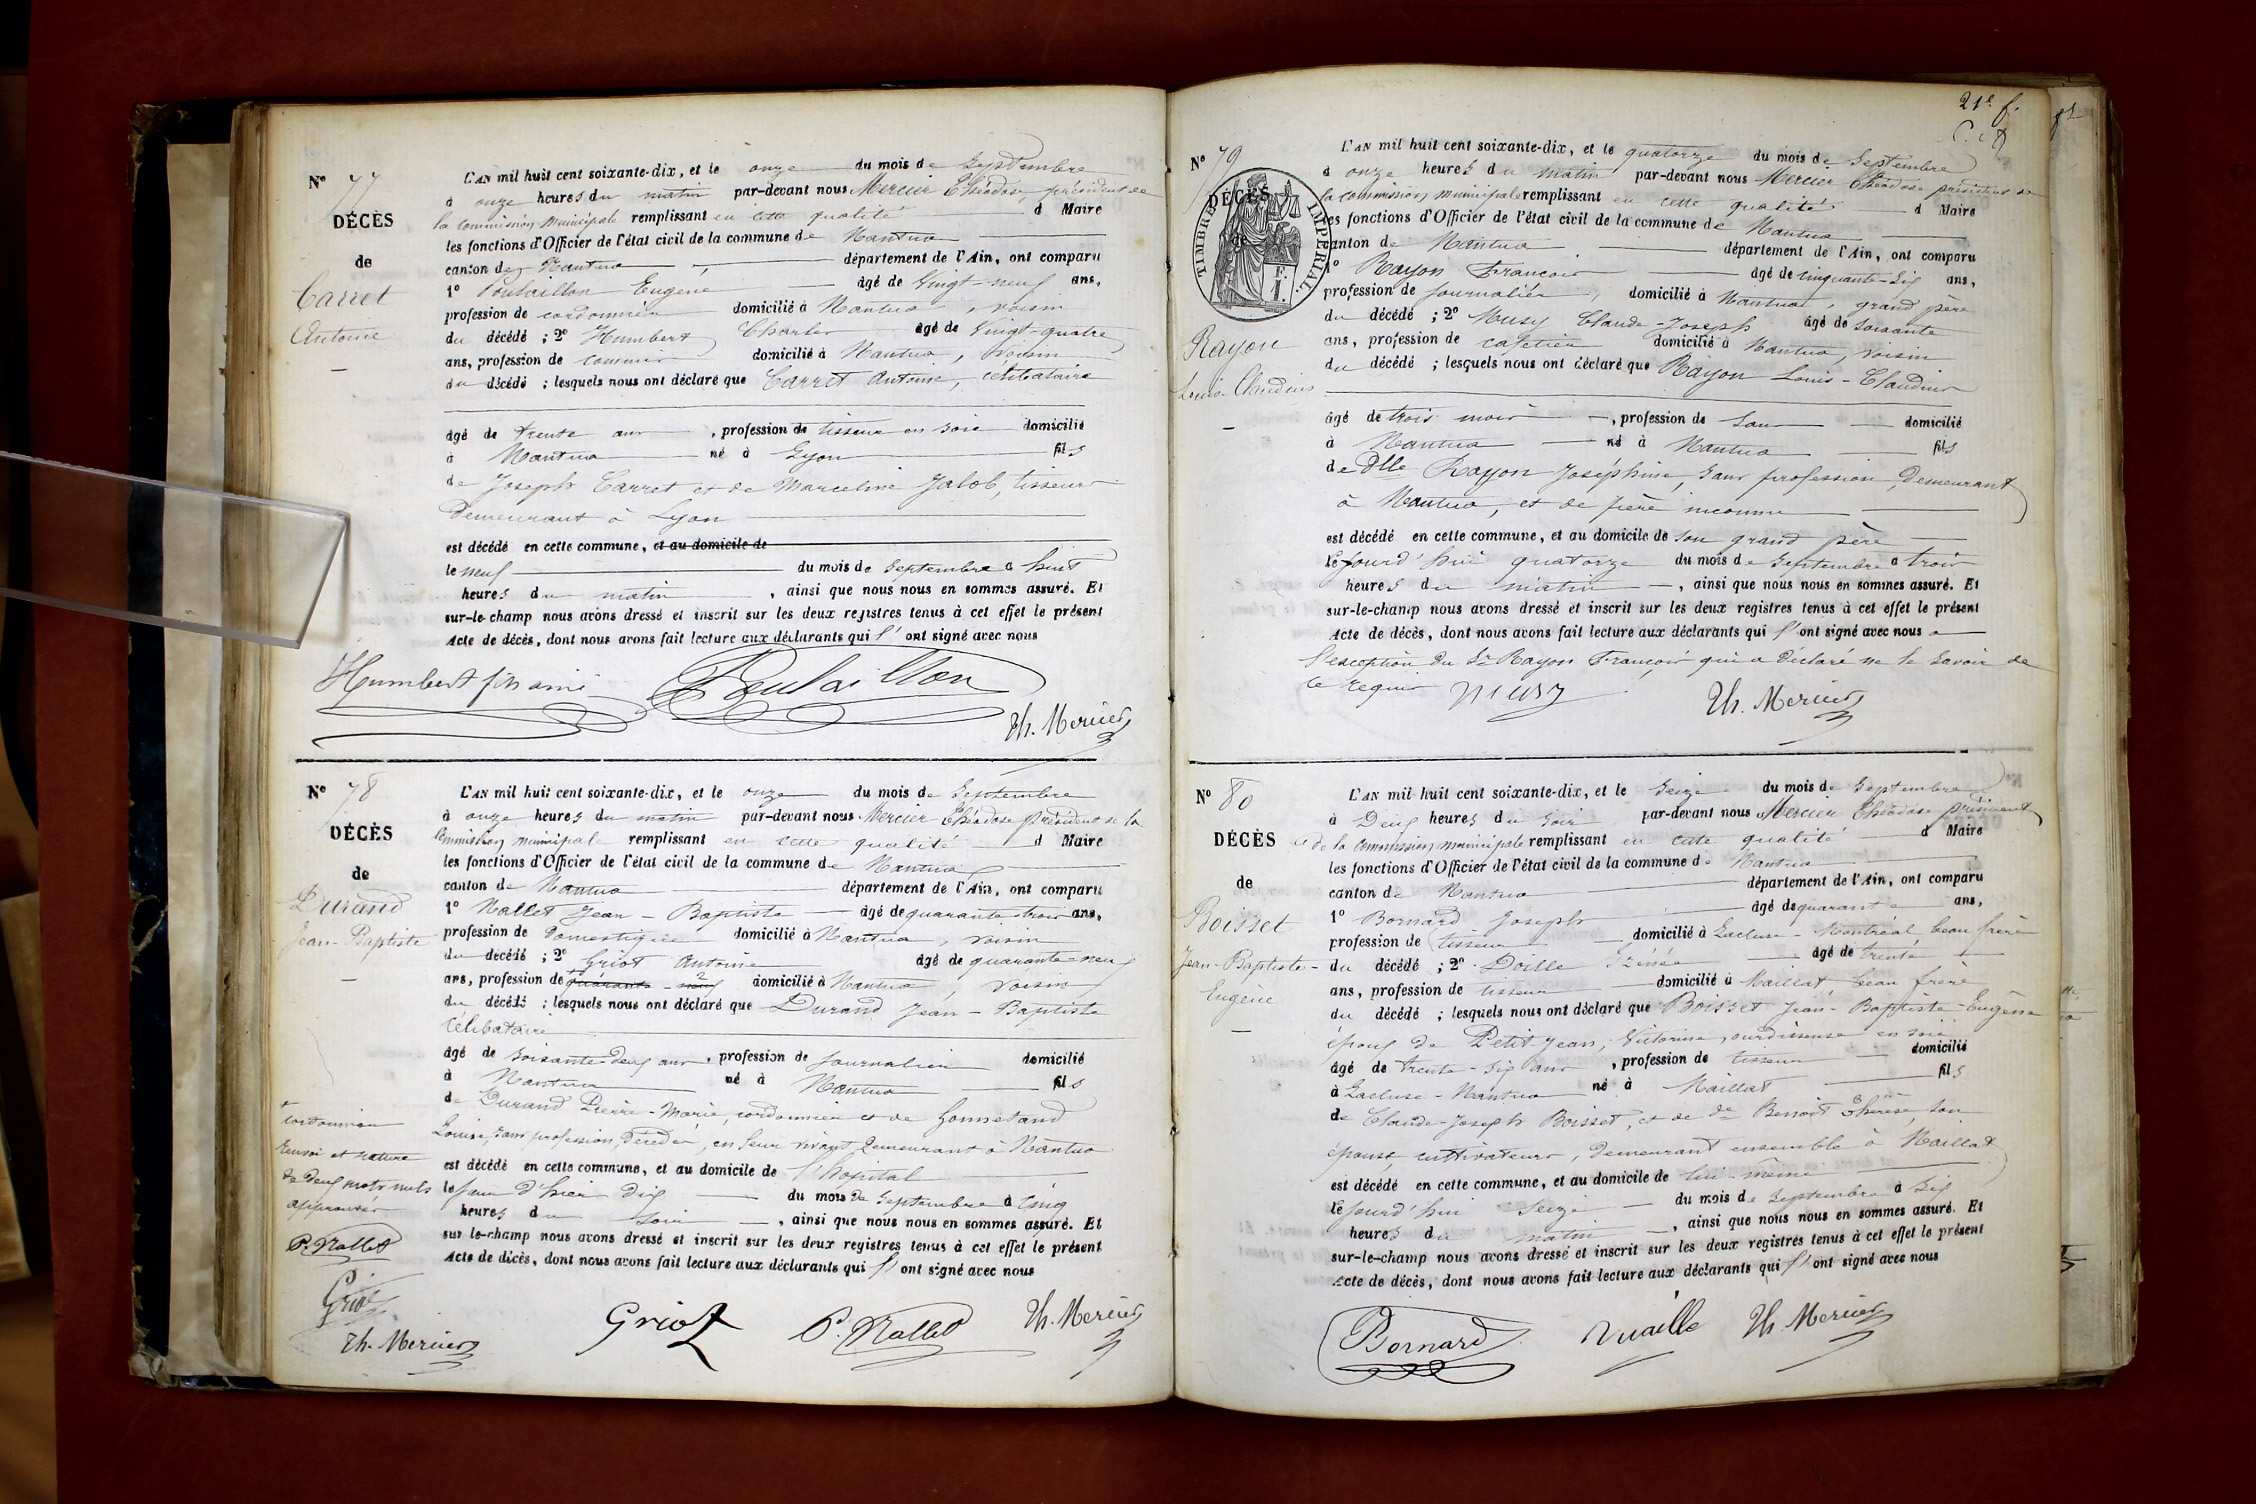 N° 77
DÉCÈS
de
Carret
Antoine
L'AN mil huit cent soixante-dix, et le onze du mois de Septembre
à onze heures du matin par-devant nous Mercier Théodose, président de
la commission municipale remplissant en cette qualité d Maire
les fonctions d'Officier de l'état civil de la commune de Nantua
canton de Nantua département de l'Ain, ont comparu
1° Poulaillon Eugène âgé de Vingt-neuf ans,
profession de cordonnier domicilié à Nantua, voisin
du décédé ; 2° Humbert Charles âgé de Vingt-quatre
ans, profession de commis domicilié à Nantua, voisin
du décédé ; lesquels nous ont déclaré que Carret Antoine, célibataire
âgé de trente ans, profession de tisseur en soie domicilié
à Nantua né à Lyon fils
de Joseph Carret et de Marceline Jalob, tisseurs
demeurant à Lyon
est décédé en cette commune, et au domicile de
le neuf du mois de Septembre à huit
heures du matin, ainsi que nous nous en sommes assuré. Et
sur-le-champ nous avons dressé et inscrit sur les deux registres tenus à cet effet le présent
Acte de décès, dont nous avons fait lecture aux déclarants qui l' ont signé avec nous
Humbert fils ainé Poulaillon
Th. Mercier
N° 78
DÉCÈS
de
Durand
Jean-Baptiste
L'AN mil huit cent soixante-dix, et le onze du mois de Septembre
à onze heures du matin par-devant nous Mercier Théodose Président de la
Commission municipale remplissant en cette qualité d Maire
les fonctions d'Officier de l'état civil de la commune de Nantua
canton de Nantua département de l'Ain, ont comparu
1° Nallet Jean-Baptiste âgé de quarante-trois ans,
profession de Domestique domicilié à Nantua, voisin
du décédé ; 2° Griot Antoine âgé de quarante-neuf
ans, profession de + quarante-neuf domicilié à Nantua, voisin
du décédé ; lesquels nous ont déclaré que Durand Jean-Baptiste
Célibataire
âgé de soixante-deux ans, profession de Journalier domicilié
à Nantua né à Nantua fils
de Durand Pierre-Marie, cordonnier et de
Louise, sans profession, Décédés, en leur vivant Demeurant à Nantua
est décédé en cette commune, et au domicile de l'hopital
le jour d'hier dix du mois de Septembre à Cinq
heures du soir, ainsi que nous nous en sommes assuré. Et
sur-le-champ nous avons dressé et inscrit sur les deux registres tenus à cet effet le présent
Acte de décès, dont nous avons fait lecture aux déclarants qui l' ont signé avec nous
+ cordonnier
Renvoi et rature
de deux mots nuls
approuvés
P. Nallet
Griot
Th. Mercier
Griot P. Nallet Th. Mercier
21e f.
N° 79
DÉCÈS
de
TIMBRE IMPÉRIAL.
Rayon
Louis-Claudius
L'AN mil huit cent soixante-dix, et le quatorze du mois de Septembre
à onze heures du matin par-devant nous Mercier Théodose président de
la commission municipale remplissant en cette qualité d Maire
les fonctions d'Officier de l'état civil de la commune de Nantua
canton de Nantua département de l'Ain, ont comparu
1° Rayon François âgé de cinquante-six ans,
profession de Journalier, domicilié à Nantua, grand père
du décédé ; 2° Musy Claude-Joseph âgé de soixante
ans, profession de cafetier domicilié à Nantua, voisin
du décédé ; lesquels nous ont déclaré que Rayon Louis-Claudius
âgé de trois mois, profession de sans domicilié
à Nantua né à Nantua fils
de Dlle Rayon Joséphine, sans profession, Demeurant
à Nantua, et de père inconnu
est décédé en cette commune, et au domicile de son grand père
le jourd'hui quatorze du mois de Septembre à trois
heures du matin, ainsi que nous nous en sommes assuré. Et
sur-le-champ nous avons dressé et inscrit sur les deux registres tenus à cet effet le présent
Acte de décès, dont nous avons fait lecture aux déclarants qui l' ont signé avec nous a
l'exception du Sr Rayon François qui a déclaré ne le savoir de
ce requis Musy Th. Mercier
N° 80
DÉCÈS
de
Boisset
Jean-Baptiste-
Eugène
L'AN mil huit cent soixante-dix, et le Seize du mois de Septembre
à Deux heures du soir par-devant nous Mercier Théodose président
de la commission municipale remplissant en cette qualité d Maire
les fonctions d'Officier de l'état civil de la commune de Nantua
canton de Nantua département de l'Ain, ont comparu
1° Bornard Joseph âgé de quarante ans,
profession de tisseur domicilié à Lacluse-Montréal beau frère
du décédé ; 2° âgé de trente
ans, profession de tisseur domicilié à Maillat beau frère
du décédé ; lesquels nous ont déclaré que Boisset Jean-Baptiste-Eugène
époux de Petit Jean, Victorine, ourdisseuse en soie
âgé de trente-six ans, profession de tisseur domicilié
à Lacluse-Nantua né à Maillat fils
de Claude-Joseph Boisset, et de de Benoit Thérèse, son
épouse cultivateurs, demeurant ensemble à Maillat
est décédé en cette commune, et au domicile de lui-même
le jourd'hui Seize du mois de Septembre à Six
heures du matin, ainsi que nous nous en sommes assuré. Et
sur-le-champ nous avons dressé et inscrit sur les deux registres tenus à cet effet le présent
Acte de décès, dont nous avons fait lecture aux déclarants qui l' ont signé avec nous
Bornard Vuaille Th. Mercier